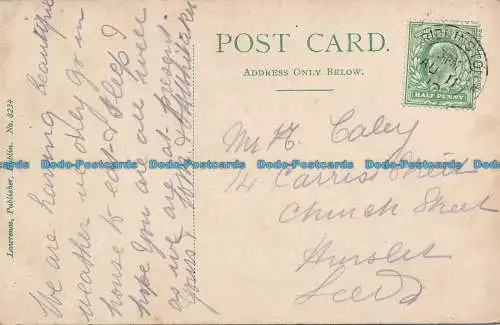 POST CARD.
ADDRESS ONLY BELOW.
HALF PENNY
Lawrence, Publisher, Dublin. No. 8234
We are having beautiful
weather we only go in
house to eat & sleep I
hope you are all well
as we are at present
Yours
Mr H. Caley
14 Carriss Street
Church Street
Hunslet
Leeds
Dodo-Postcards Dodo-Postcards Dodo-Postcards Dodo-Postcards Dodo-Postcards